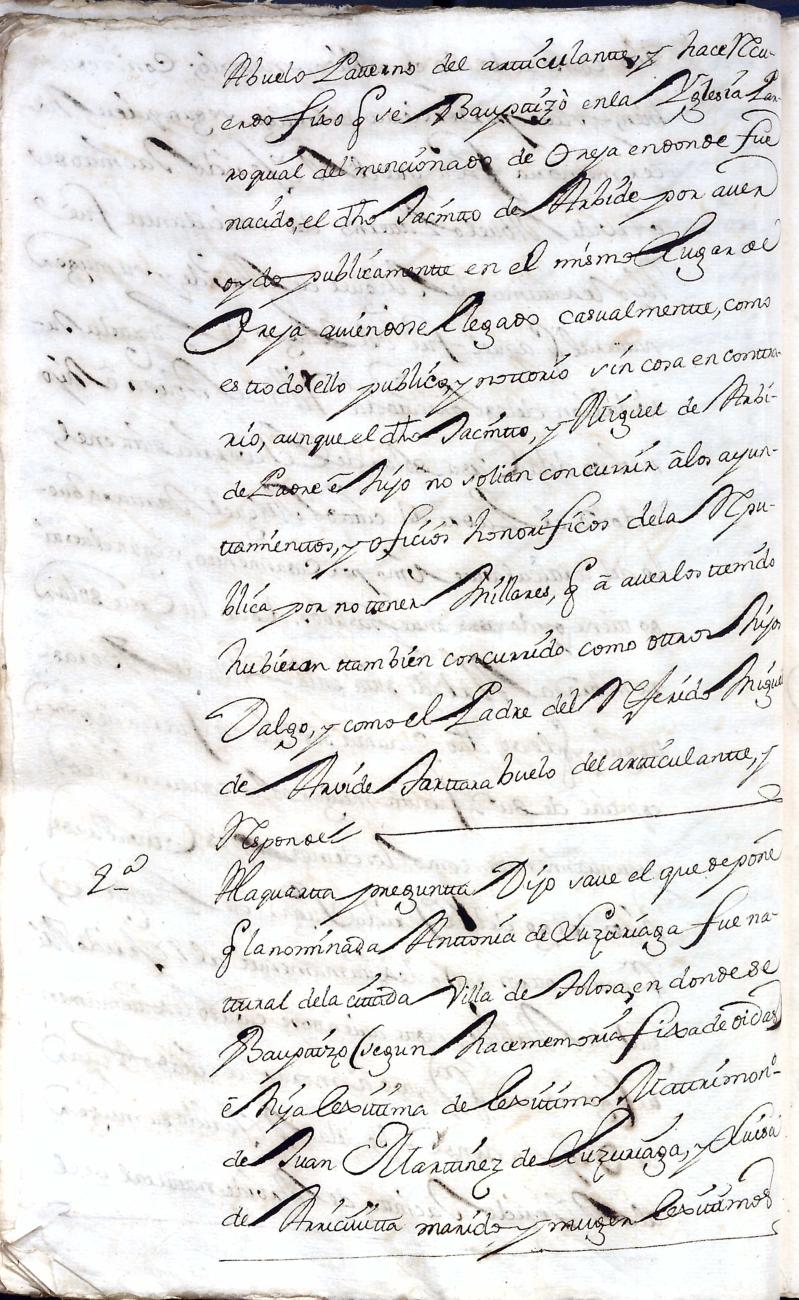 Abuelo Patterno del articulantte, y hace Recu-
erdo fixo q̃ se Bauptizò en la Yglesia Par-
roquial del mencionado de Orexa en donde fue
nacido, el dho Jacintto de Arbide por aver
oydo publicamentte en el mismo Lugar de
Orexa aviendose llegado casualmentte, como
es ttodo ello publico, y nottorio sin cosa en conttra-
rio, aunque el dho Jacintto, y Miguel de Arbi-
de Padre è hijo no solian concurrir â los ayun-
ttamienttos, y oficios honorificos de la Repu-
blica por no tener Millares, q̃ â averlos ttenido
hubieran ttambien concurrido como ottros hijos
Dalgo, y como el Padre del Referido Miguel
de Arvide Tarttarabuelo del articulantte, y
Responde
4ª
A la quartta preguntta Dijo save el que depone
q̃ la nominada Anttonia de Luzuriaga fue na-
ttural de la cittada Villa de Tolosa, en donde se
Bauptizo (segun hace memoria fixa de oidas)
è hija lexittima de lexittimo Mattrimonº
de Juan Martinez de Luzuriaga, y Luisa
de Arricivitta marido y muger lexittimos